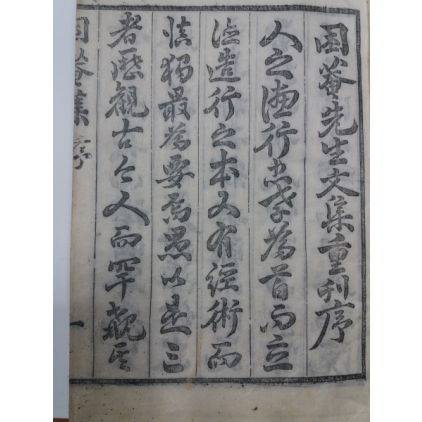 困菴先生文集重刊序
人之德行忠孝為首而立
德造行之本又有經術而
慎獨最為要焉愚以是三
者歷觀古今人而罕覯其
困菴集 序 一